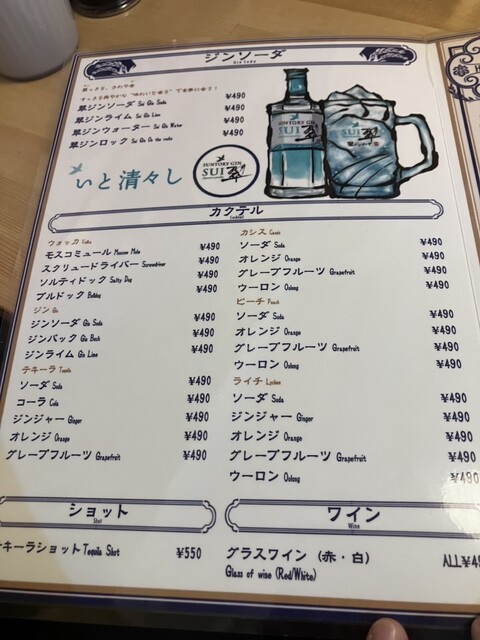 ジンソーダ
Gin Soda
翠、すっきり、さわやか
翠ジンソーダ Sui Gin Soda ¥490
翠ジンライム Sui Gin Lime ¥490
翠ジンウォーター Sui Gin Water ¥490
翠ジンロック Sui Gin On the rocks
いと清々し
SUNTORY GIN
SUI 翠
SUNTORY GIN
SUI 翠
SUI 翠
カクテル
Cocktail
ウォッカ Vodka
モスコミュール Moscow Mule ¥490
スクリュードライバー Screwdriver ¥490
ソルティドック Salty Dog ¥490
ブルドック Bulldog ¥490
ジン Gin
ジンソーダ Gin Soda ¥490
ジンバック Gin Back ¥490
ジンライム Gin Lime ¥490
テキーラ Tequila
ソーダ Soda ¥490
コーラ Cola ¥490
ジンジャー Ginger ¥490
オレンジ Orange ¥490
グレープフルーツ Grapefruit ¥490
カシス Cassis
ソーダ Soda ¥490
オレンジ Orange ¥490
グレープフルーツ Grapefruit ¥490
ウーロン Oolong ¥490
ピーチ Peach
ソーダ Soda ¥490
オレンジ Orange ¥490
グレープフルーツ Grapefruit ¥490
ウーロン Oolong ¥490
ライチ Lychee
ソーダ Soda ¥490
ジンジャー Ginger ¥490
オレンジ Orange ¥490
グレープフルーツ Grapefruit ¥490
ウーロン Oolong ¥490
ショット
Shot
テキーラショット Tequila Shot ¥550
ワイン
Wine
グラスワイン（赤・白） ALL¥4
Glass of wine (Red/White)